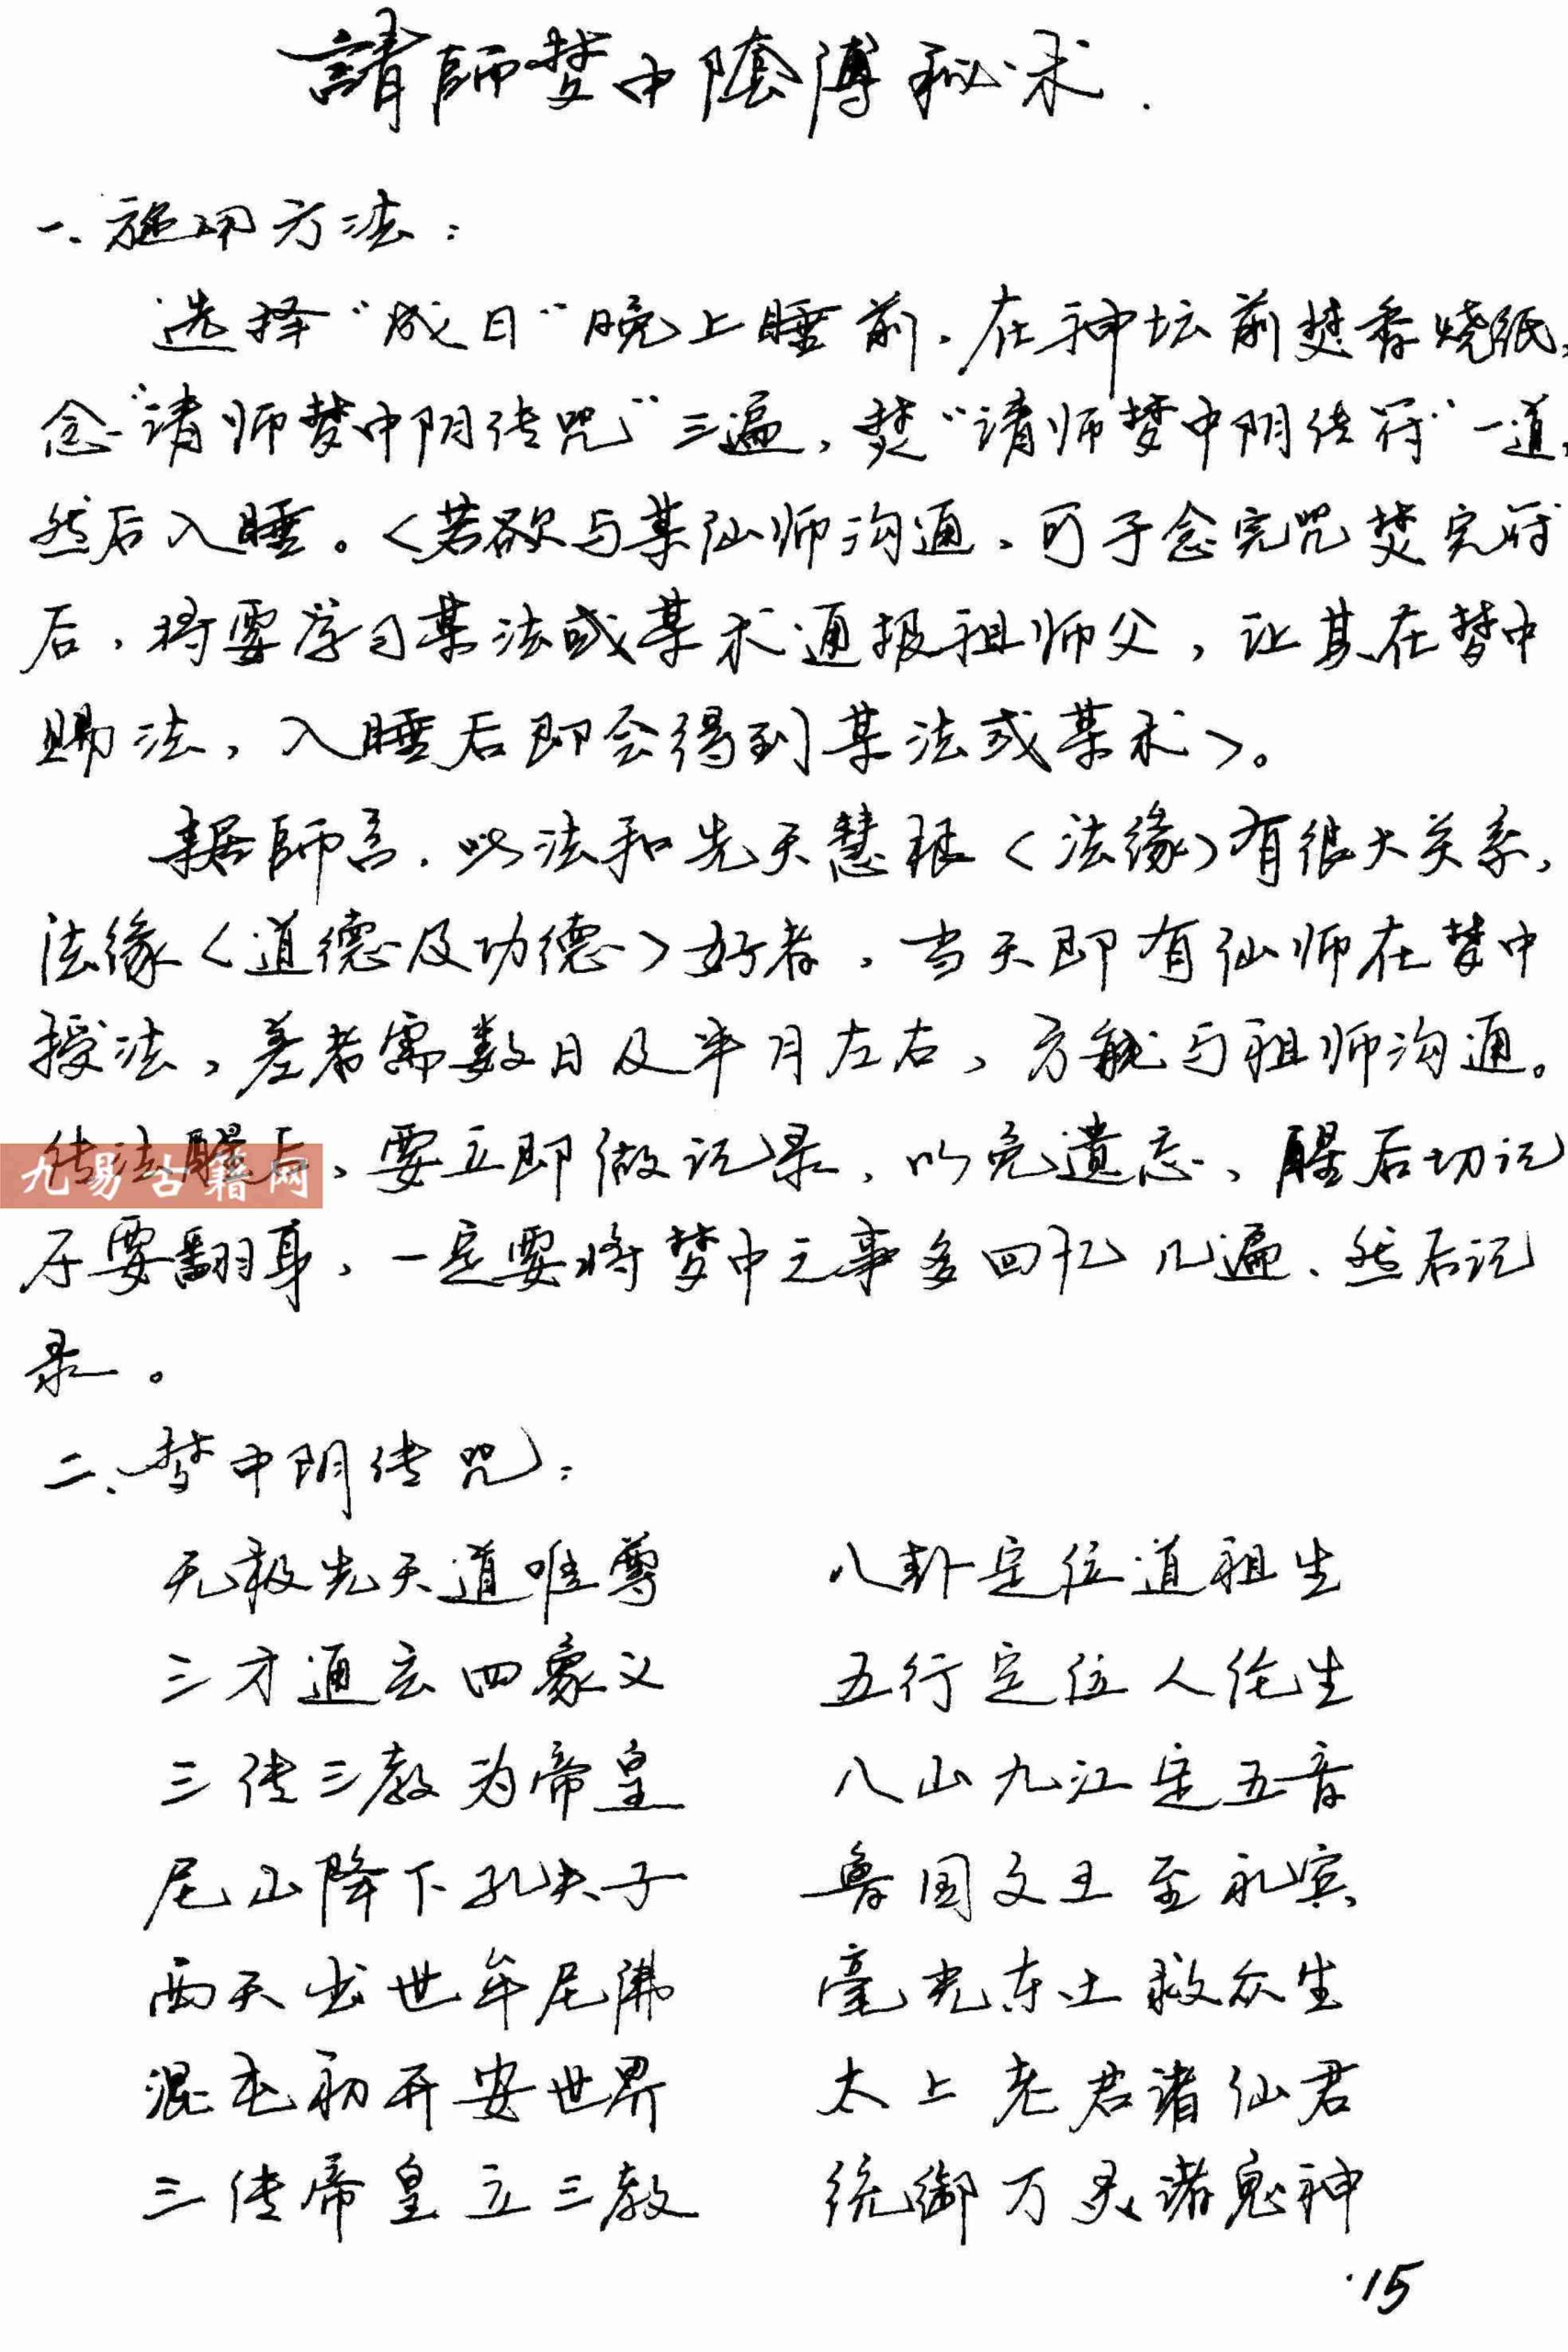 請師梦中陰傅秘术.
一、施用方法：
选择“成日”晚上睡前，在神坛前焚香烧纸，
念“请师梦中阴传咒”三遍，焚“请师梦中阴传符”一道，
然后入睡。<若欲与某仙师沟通，可于念完咒焚完符
后，将要学习某法或某术通报祖师父，让其在梦中
赐法，入睡后即会得到某法或某术>。
据師言，此法和先天慧根<法缘>有很大关系，
法缘<道德及功德>好者，当天即有仙师在梦中
授法，差者需数日及半月左右，方能与祖师沟通。
传法醒后，要立即做记录，以免遗忘，醒后切记
不要翻身，一定要将梦中之事多回忆几遍、然后记
录。
九易古籍网
二、梦中阴传咒：
无极先天道唯尊 八卦定位道祖生
三才通玄四象义 五行定位人伦生
三传三教为帝皇 八山九江定五音
尼山降下孔夫子 鲁国文王至礼宾
西天出世牟尼佛 毫光东土救众生
混屯初开安世界 太上老君诸仙君
三传帝皇立三教 统御万灵诸鬼神
·15